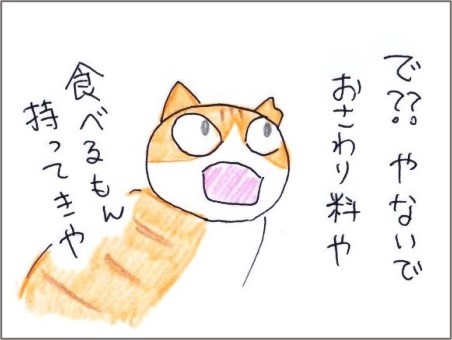 で??やないで
おさわり料や
食べるもん
持ってきや